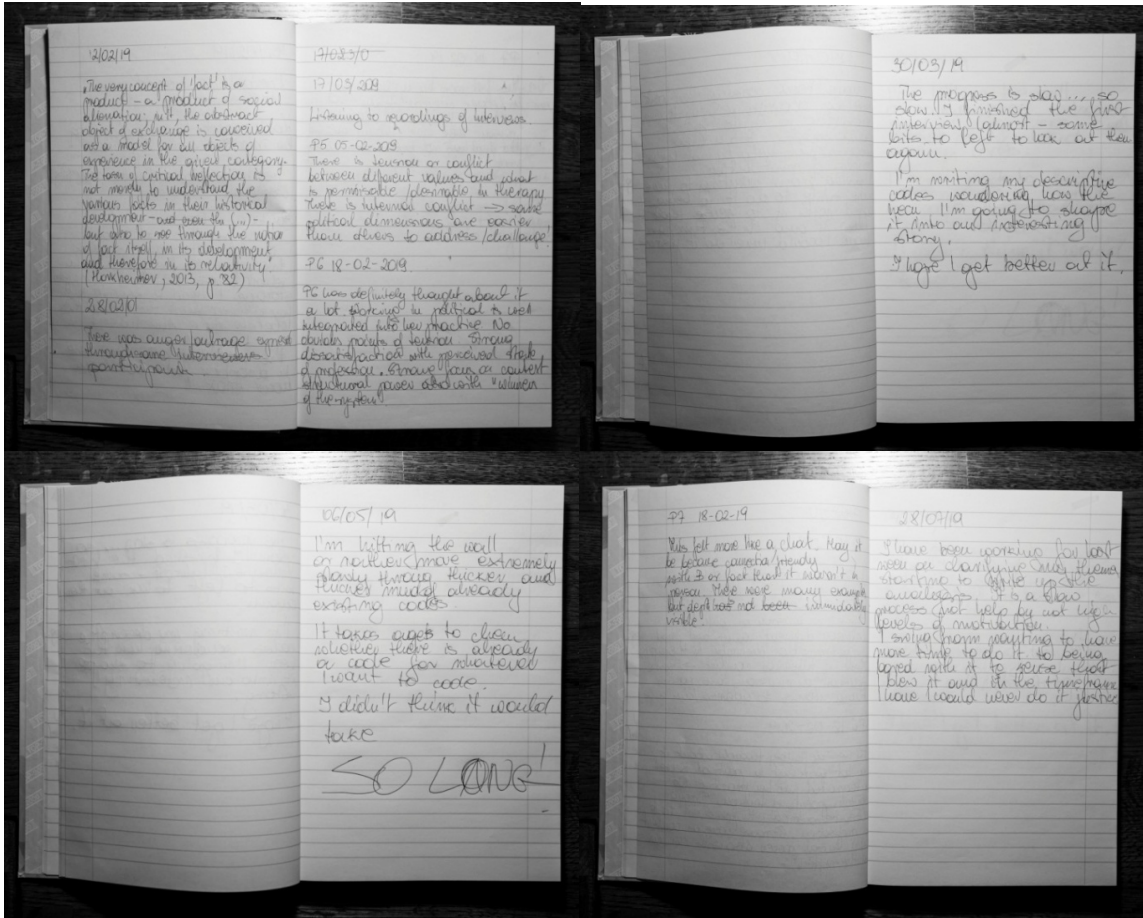 12/02/19
"The very concept of 'fact' is a
product - a product of social
alienation; in it, the abstract
object of exchange is conceived
as a model for all objects of
experience in the given category.
The task of critical reflection is
not merely to understand the
various facts in their historical
development - and even the (...) -
but also to see through the notion
of fact itself, in its development
and therefore in its relativity."
(Horkheimer, 2013, p. 82)
28/02/01
There was anger/outrage
through some interviewees
participants
17/083/0
17/03/209
Listening to recordings of interviews
P5 05-02-209
There is tension or conflict
between different values and what
is permissible/desirable in therapy
There is internal conflict → some
political dimensions are easier
than others to address/challenge!
P6 18-02-2019
P6 has definitely thought about it
a lot. Working in political is well
integrated into her practice No
obvious points of tension Strong
dissatisfaction with perceived state
of profession. Strong focus on context
structural power also with "winners
of the system".
30/03/19
The progress is slow..., so
slow. I finished the first
interview (almost - some
bits to left to look at them
again.
I'm writing my descriptive
codes wondering how the
hell I'm going to shape
it into and interesting
story.
I hope I get better at it.
06/05/19
I'm hitting the wall
or rather move extremely
slowly through thicker and
thicker mud of already
existing codes.
It takes ages to check
whether there is already
a code for whatever
I want to code.
I didn't think it would
take
SO LONG!
P7 18-02-19
This felt more like a chat. May it
be because connection/friendly
with 3 or fact that it wasn't in
person. There were many example
but depth was not been immediately
visible.
28/07/19
I have been working for last
week on clarifying my themes
starting to write up the
analysis. It is a slow
process not help by not high
levels of motivation.
I swing from wanting to have
more time to do it to being
bored with it to sense that
I blew it and in the timeframe
I have I would never do it justice